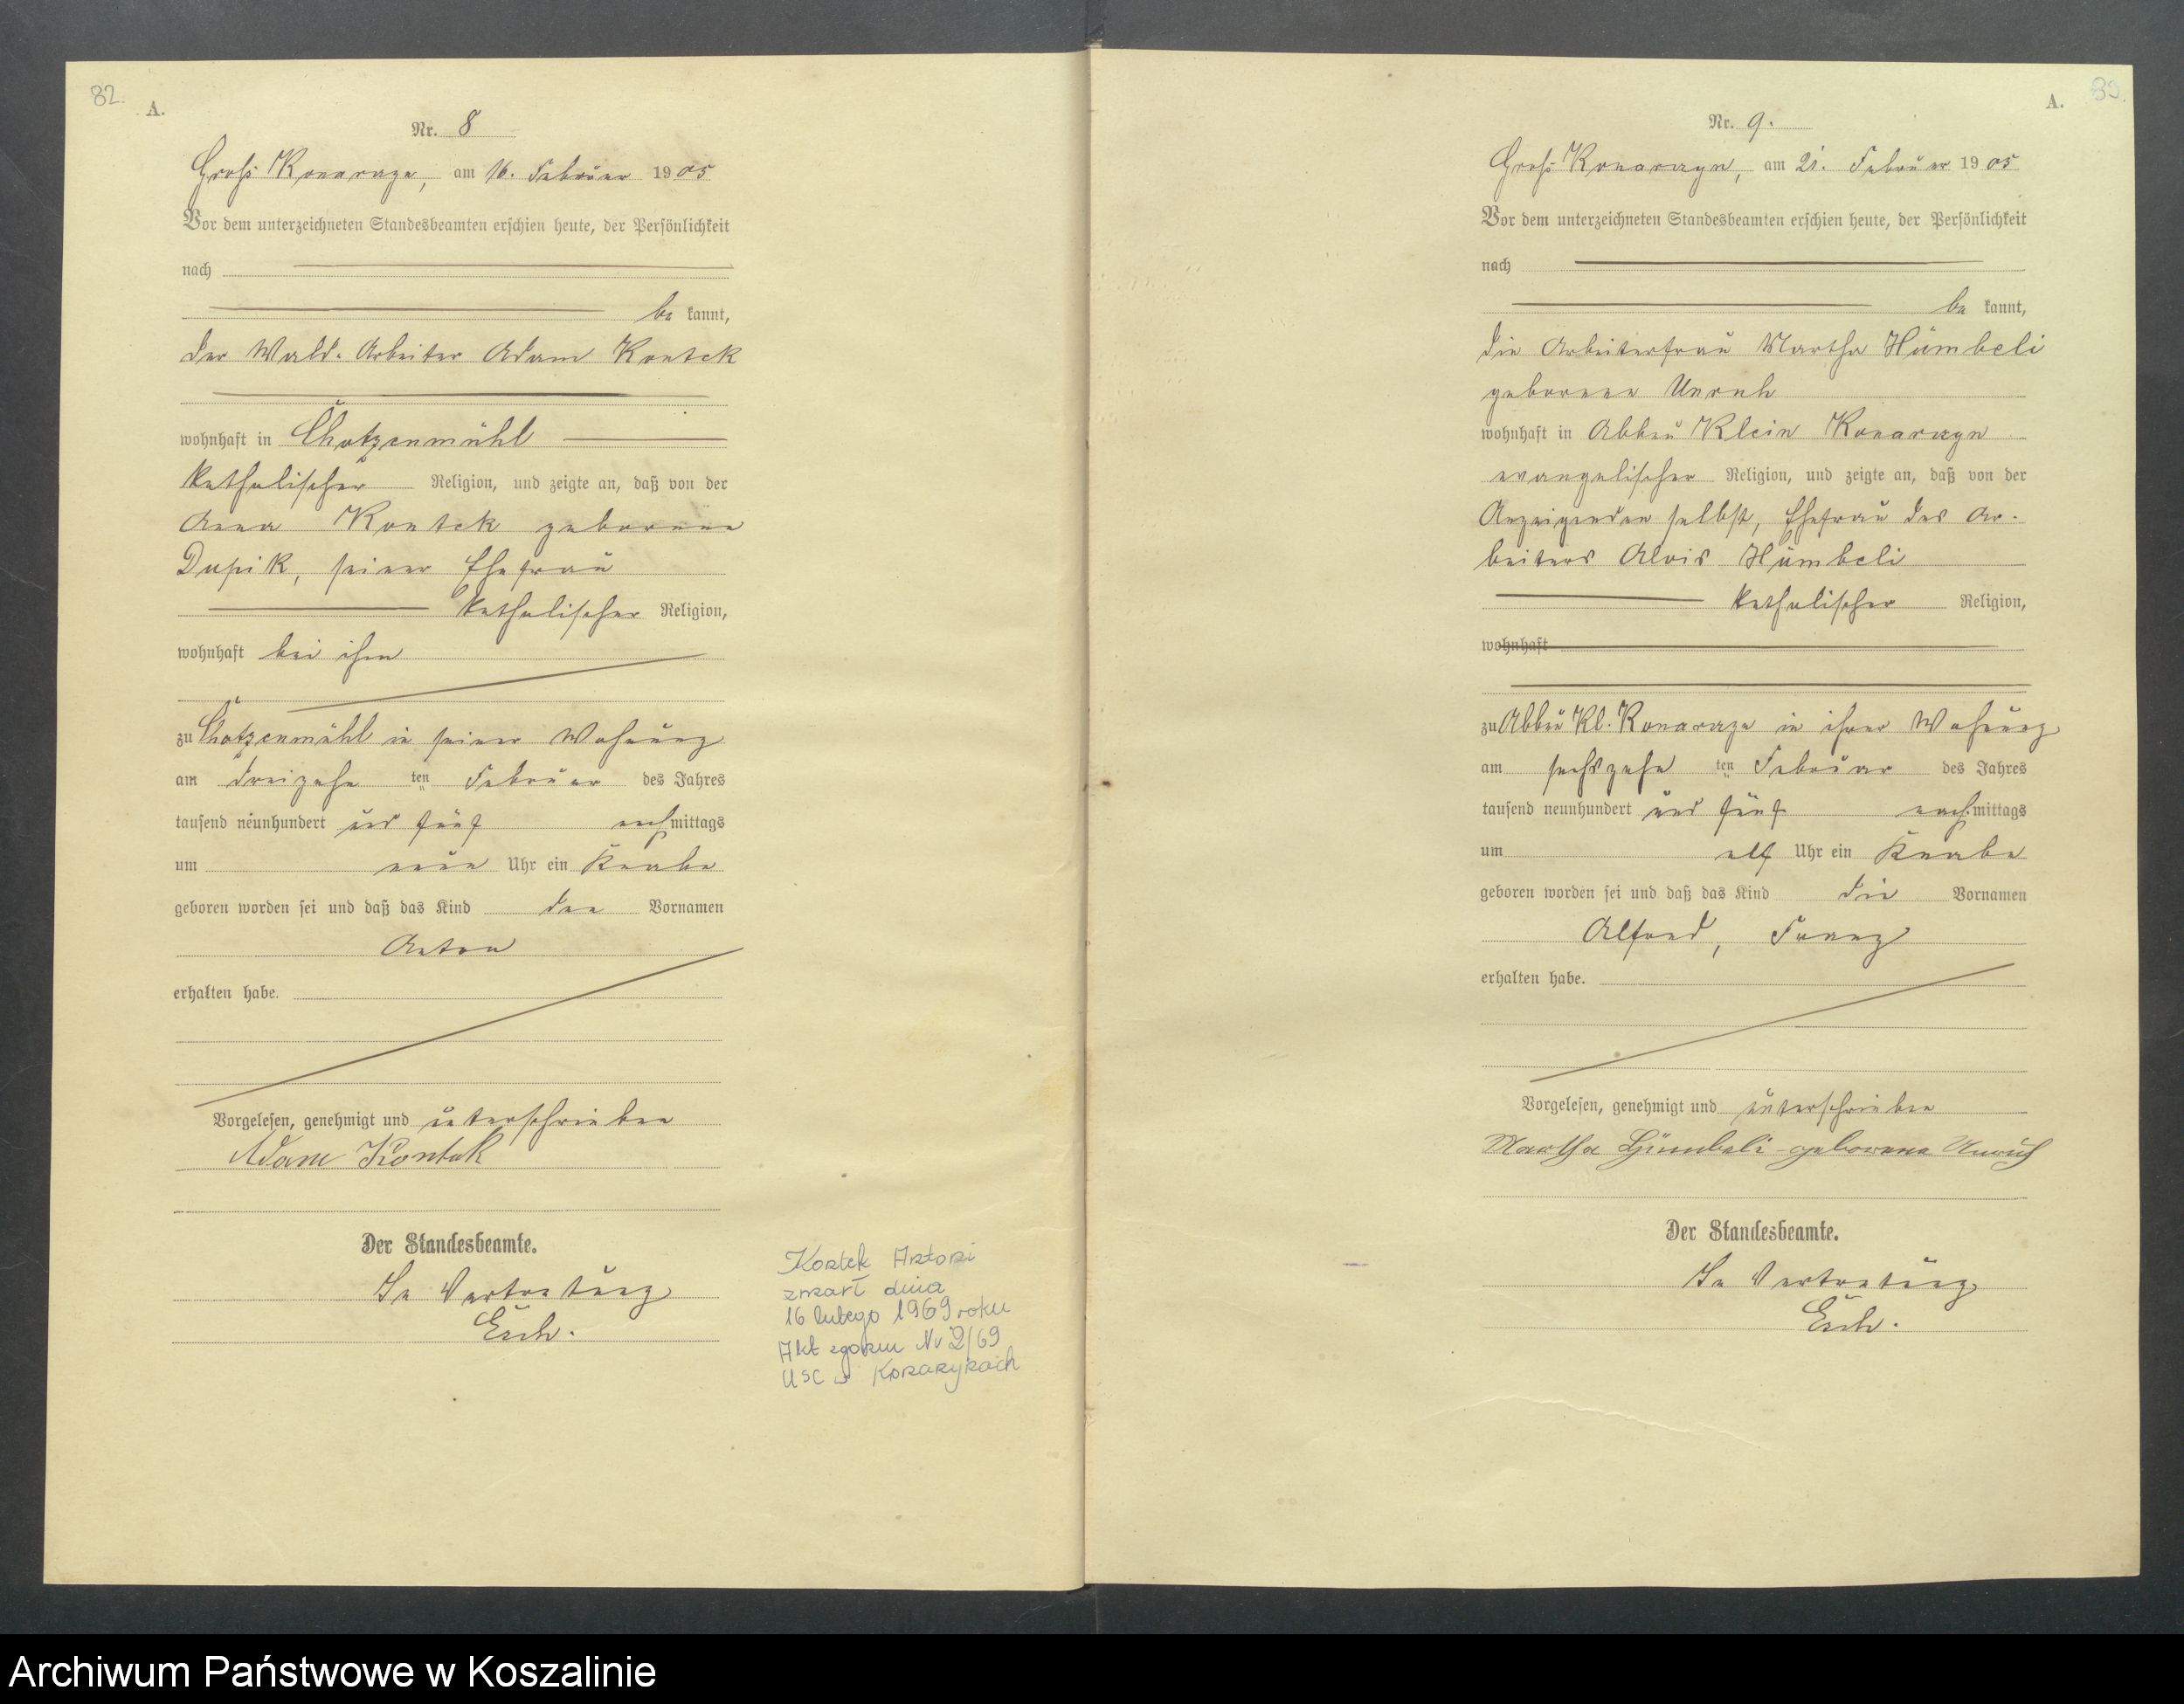 82.
A.
Nr. 8
Groß Konarzyn, am 16. Februar 1905
Vor dem unterzeichneten Standesbeamten erschien heute, der Persönlichkeit
nach
be kannt,
der Wald-Arbeiter Adam Kontek
wohnhaft in Chotzenmühl
katholischer Religion, und zeigte an, daß von der
Anna Kontek geborene
Dupik, seiner Ehefrau
katholischer Religion,
wohnhaft bei ihm
zu Chotzenmühl in seiner Wohnung
am dreizehn ten Februar des Jahres
tausend neunhundert und fünf nachmittags
um neun Uhr ein Knabe
geboren worden sei und daß das Kind den Vornamen
Anton
erhalten habe.
Vorgelesen, genehmigt und unterschrieben
Adam Kontek
Der Standesbeamte.
In Vertretung
Esch.
Kontek Antoni
zmarł dnia
16 lutego 1969 roku
Akt zgonu Nr 2/69
USC w Konarzynach
A.
Nr. 9.
Groß Konarzyn, am 21. Februar 1905
Vor dem unterzeichneten Standesbeamten erschien heute, der Persönlichkeit
nach
be kannt,
die Arbeiterfrau Martha Humbeli
geborene Unruh
wohnhaft in Abbau Klein Konarzyn
evangelischer Religion, und zeigte an, daß von der
Anzeigenden selbst, Ehefrau des Ar-
beiters Alois Humbeli
katholischer Religion,
wohnhaft
zu Abbau Kl. Konarzyn in ihrer Wohnung
am sechszehn ten Februar des Jahres
tausend neunhundert und fünf nachmittags
um elf Uhr ein Knabe
geboren worden sei und daß das Kind die Vornamen
Alfred, Franz
erhalten habe.
Vorgelesen, genehmigt und unterschrieben
Martha Humbeli geborene Unruh
Der Standesbeamte.
In Vertretung
Esch.
Archiwum Państwowe w Koszalinie